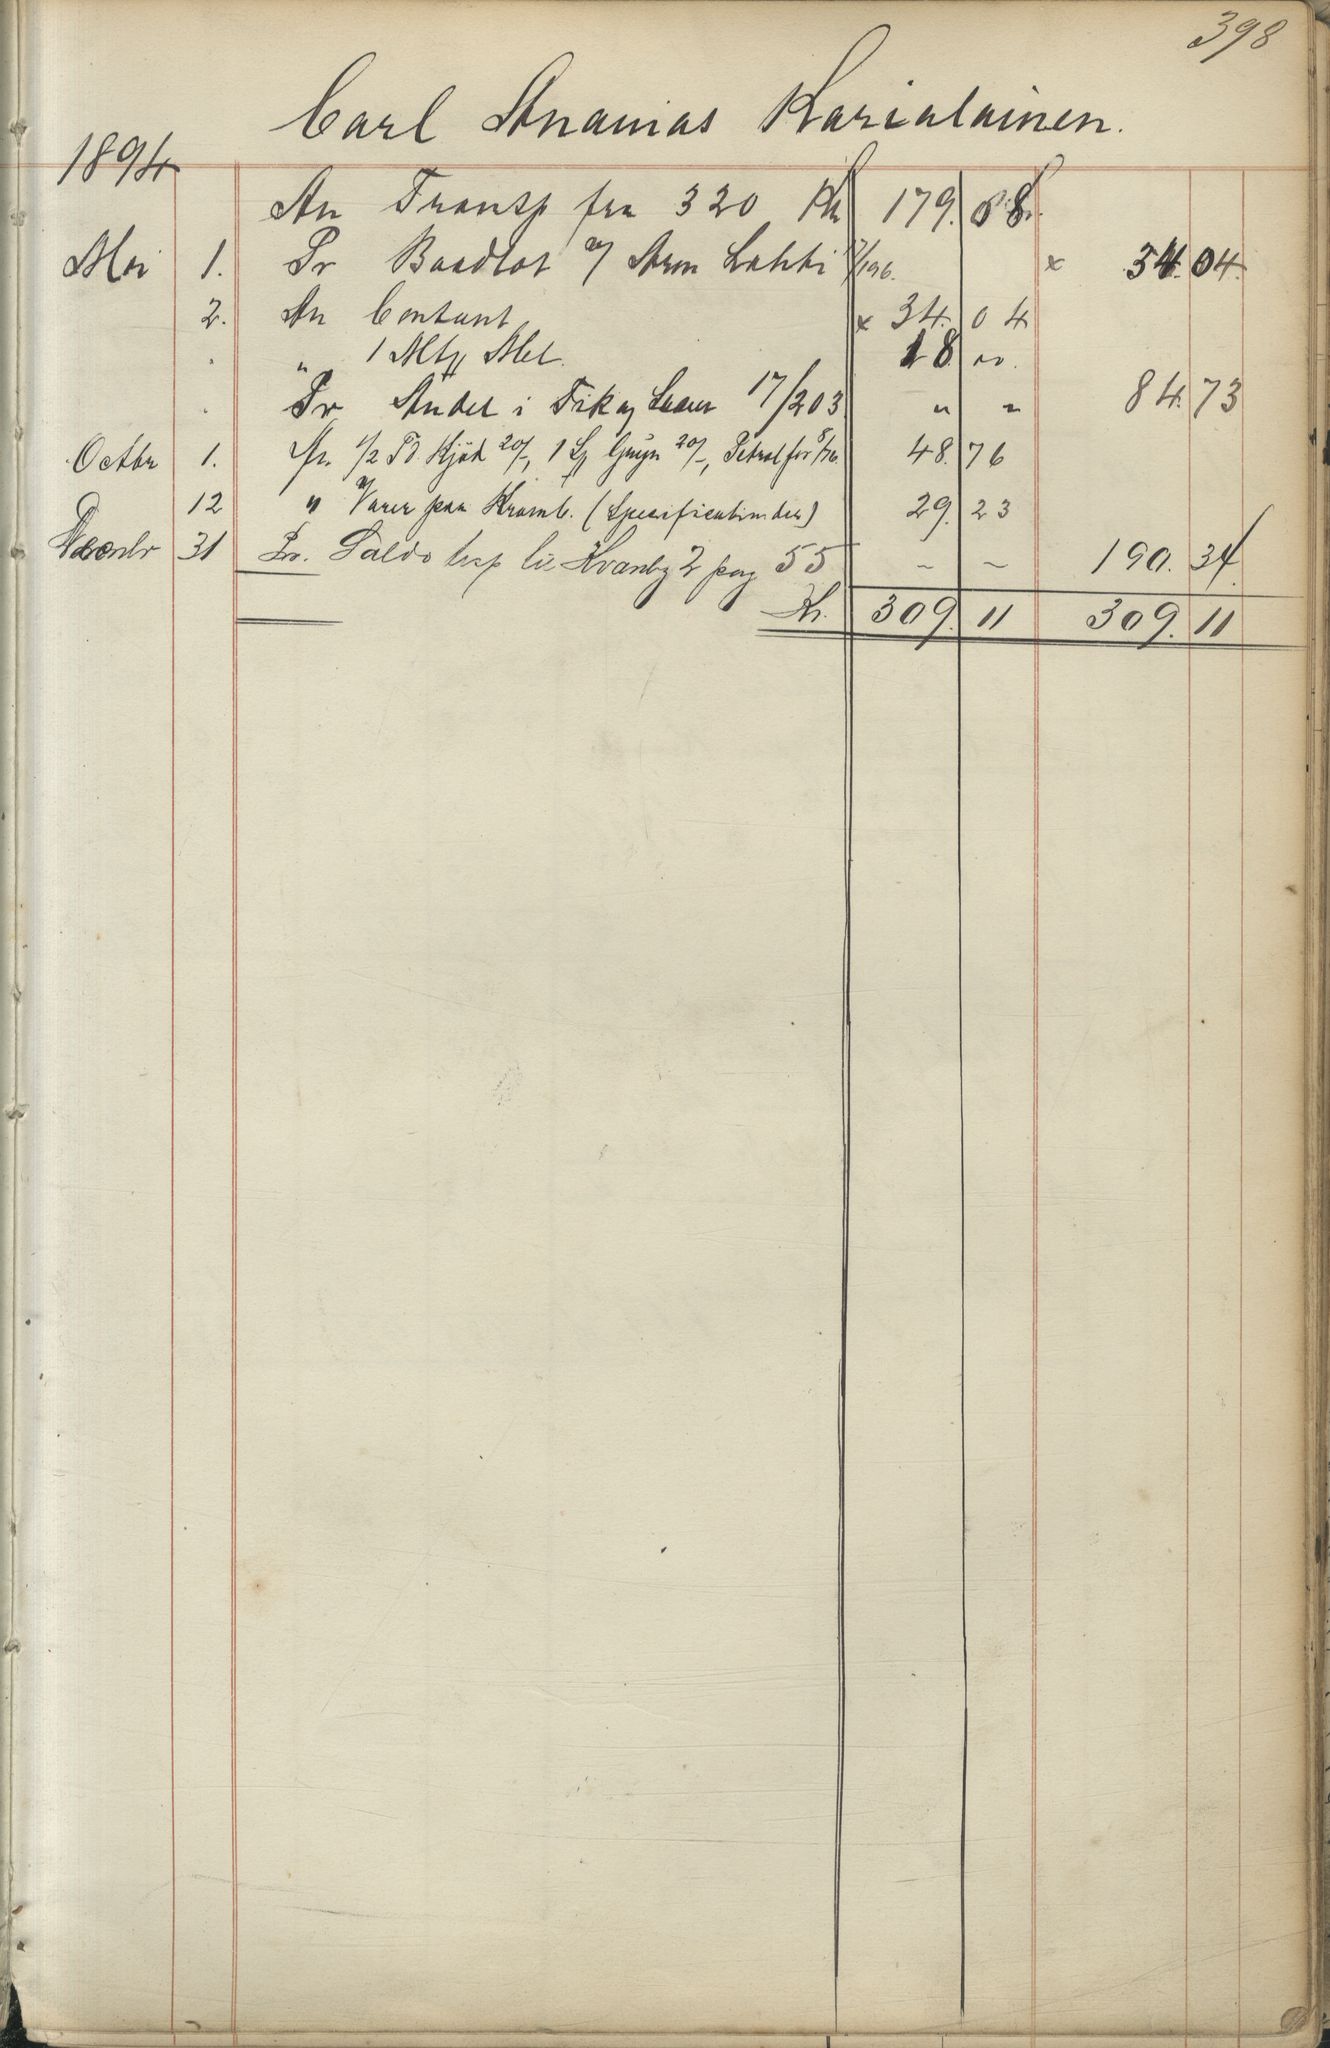 398
Carl Ananias Karialainen.
1894
An Transp fra 320 Kr 179. 08.
Mai 1. Pr Baadlot m/ Aron Lahti 17/196. x 34. 04.
2. An Contant x 34. 04
. " 1 Mtp Mel. 18. "".
. Pr Andel i Fisk og Laaer 17/203 " " 84. 73
Octbr 1. An 1/2 Td. Kjød 20/-, 1 Sp Gryn 20/-, Petrol for 8/76. 48. 76
12 " Varer paa Kramb. (Specification den) 29. 23
Decenbr 31 Pr. Saldo tsp til Kvænby 2 pag 55 ~ ~ 190. 34.
Kr. 309. 11 309. 11